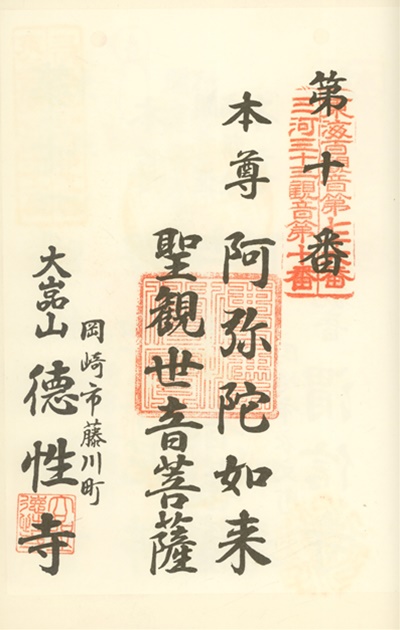 第十番
三河三十三観音第十番
本尊 阿弥陀如来
聖観世音菩薩
岡崎市藤川町
大嵓山 德性寺